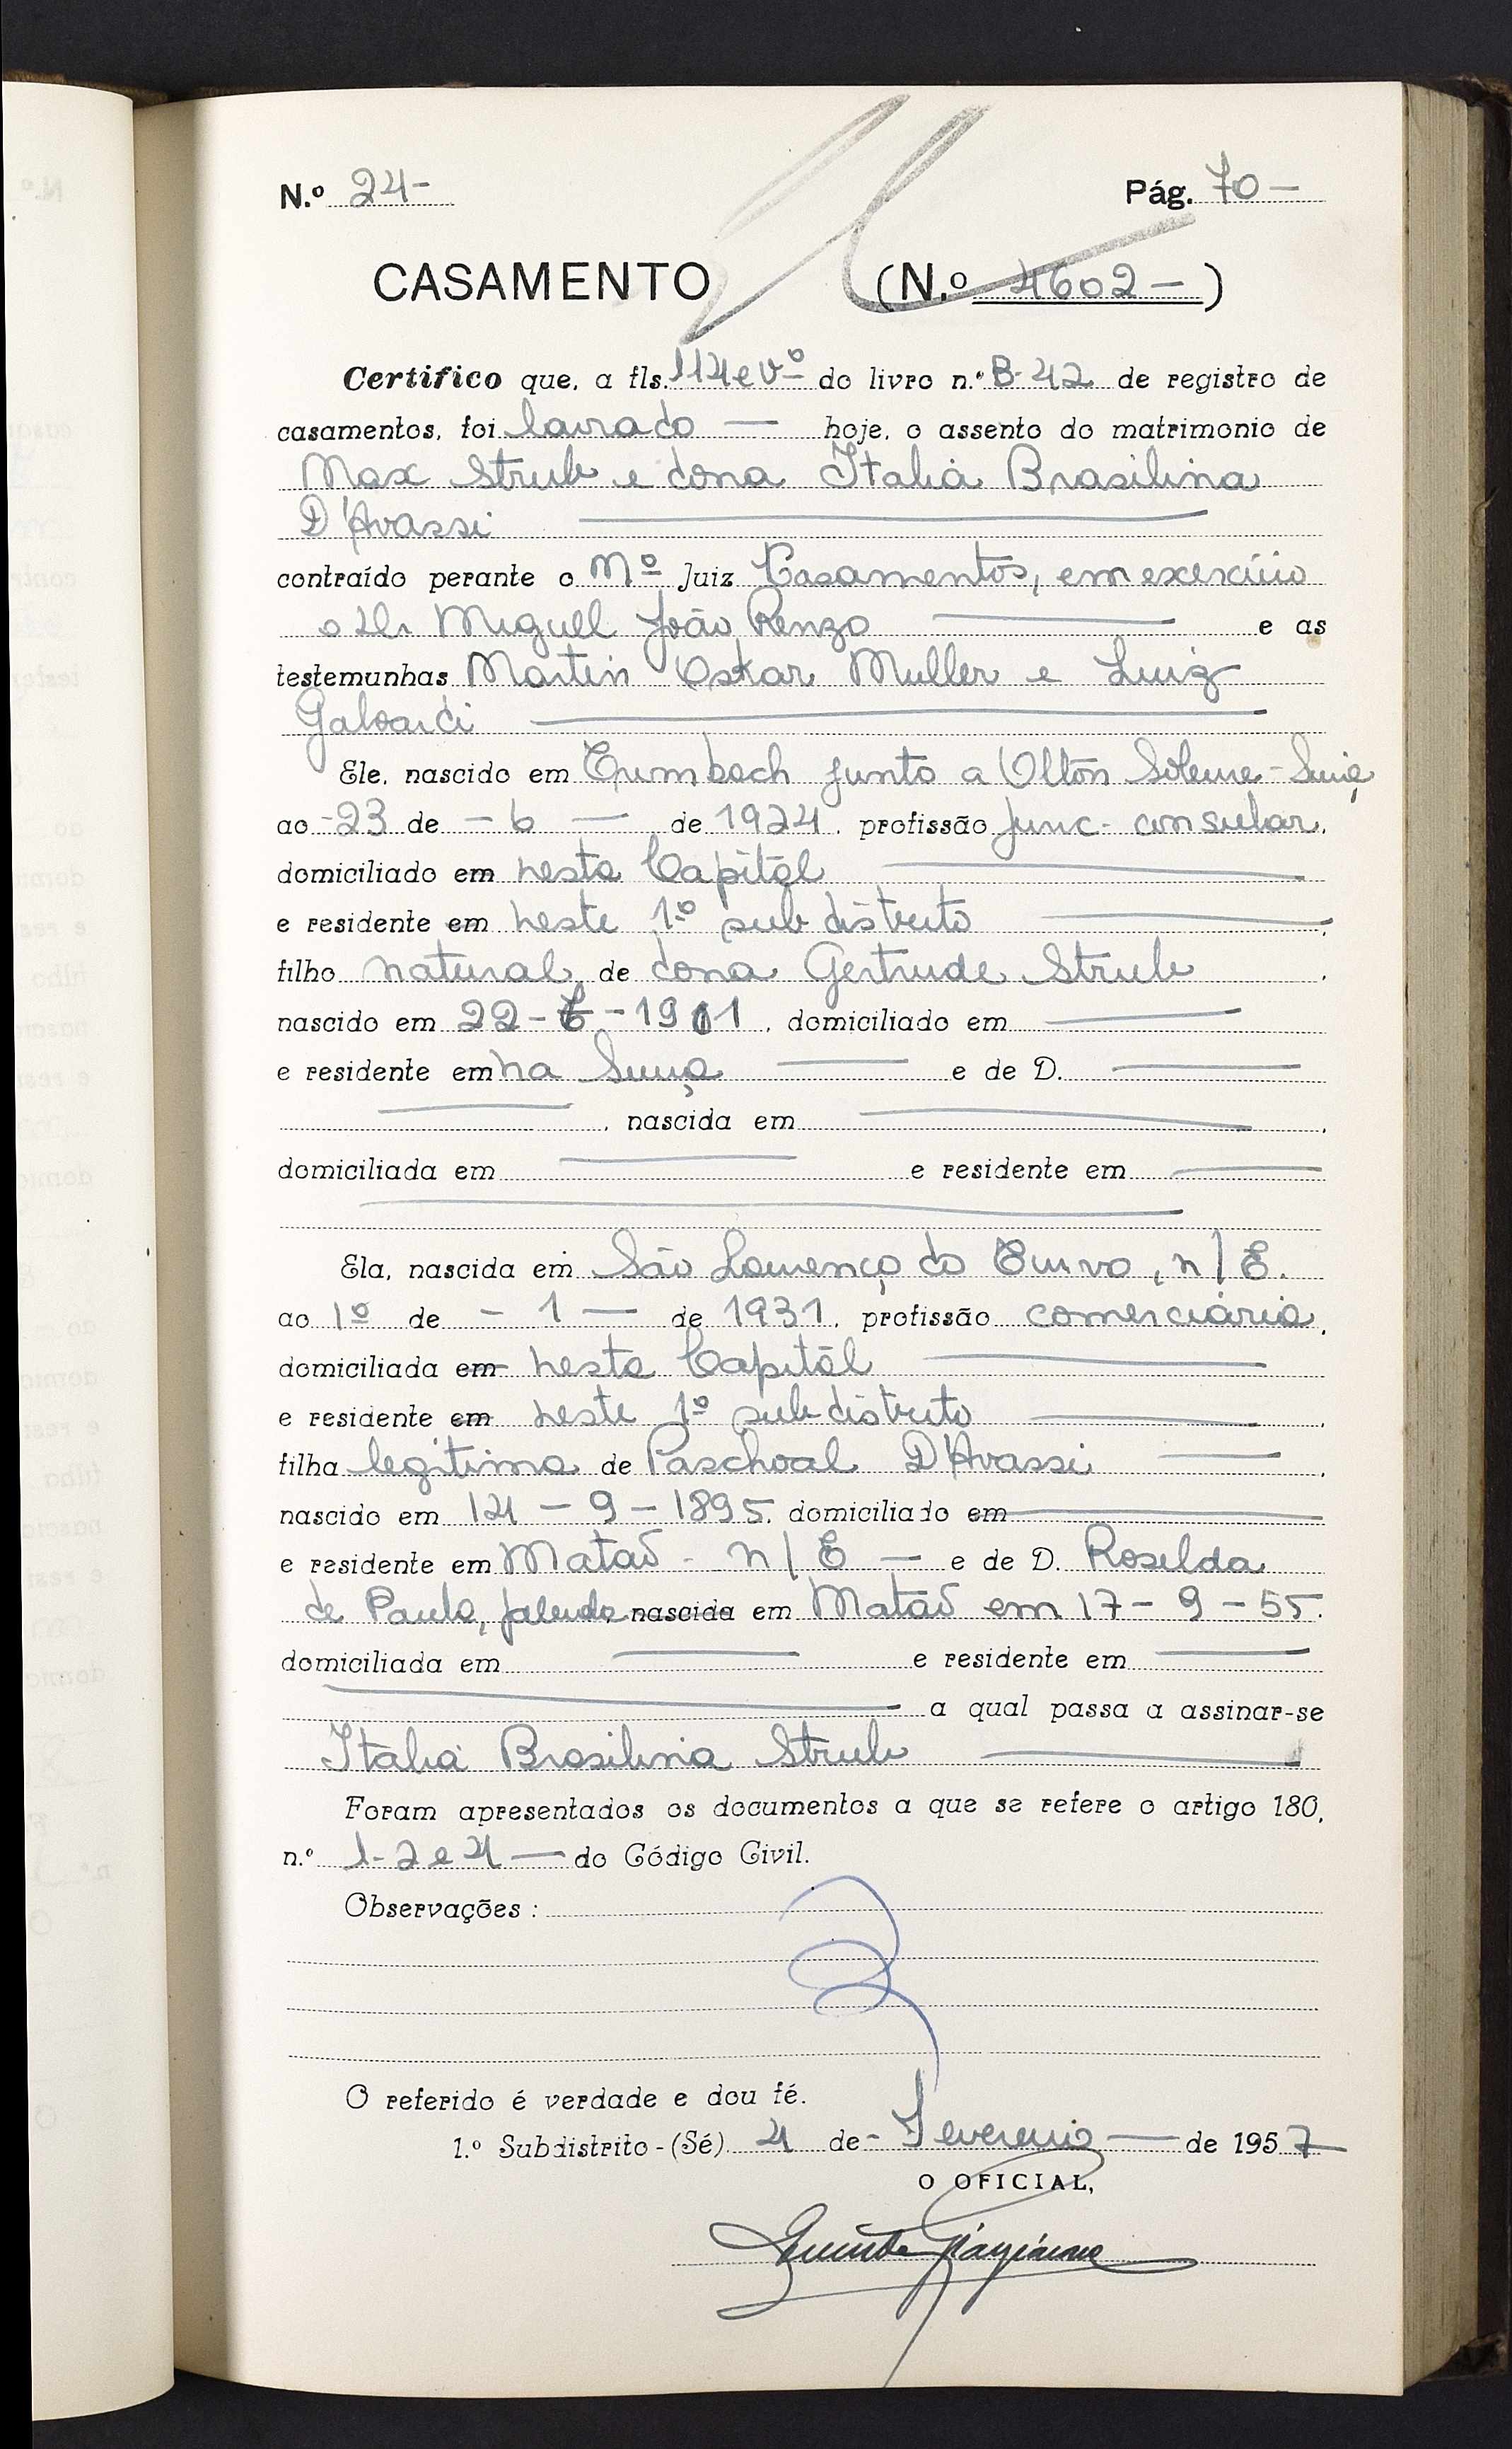 N.º 24-
Pág. 70 —
CASAMENTO (N.º 4602 — )
Certifico que, a fls. 114 e vº do livro n.º B-42 de registro de
casamentos, foi lavrado — hoje, o assento do matrimonio de
Max Strub e dona Italia Brasilina
D'Avassi
contraído perante o Mº Juiz Casamentos, em exercício
o Dr Miguel João Renzo e as
testemunhas Martin Oskar Muller e Luiz
Galvardi
Ele, nascido em Trumbach junto a Olton Soleure - Suiça
ao - 23 de - 6 — de 1924, profissão func- consular,
domiciliado em nesta Capital
e residente em neste 1º subdistrito ,
filho natural de dona Gertrude Strub ,
nascido em 22- - 1901, domiciliado em
e residente em na Suiça — e de D. —
, nascida em ,
domiciliada em e residente em
Ela, nascida em São Lourenço do Turvo, n/E.
ao 1º de - 1 — de 1931, profissão comerciária,
domiciliada em nesta Capital
e residente em neste 1º subdistrito ,
filha legitima de Paschoal D'Avassi ,
nascido em 14 - 9 - 1895, domiciliado em
e residente em Matão - n/E — e de D. Roselda
de Paula, falecida nascida em Matão em 17- 9 - 55.
domiciliada em e residente em
a qual passa a assinar-se
Italia Brasilina Strub
Foram apresentados os documentos a que se refere o artigo 180,
n.º 1-2 e 4 — do Código Civil.
Observações :
O referido é verdade e dou fé.
1.º Subdistrito - (Sé) 4 de - Fevereiro — de 1957
O OFICIAL,